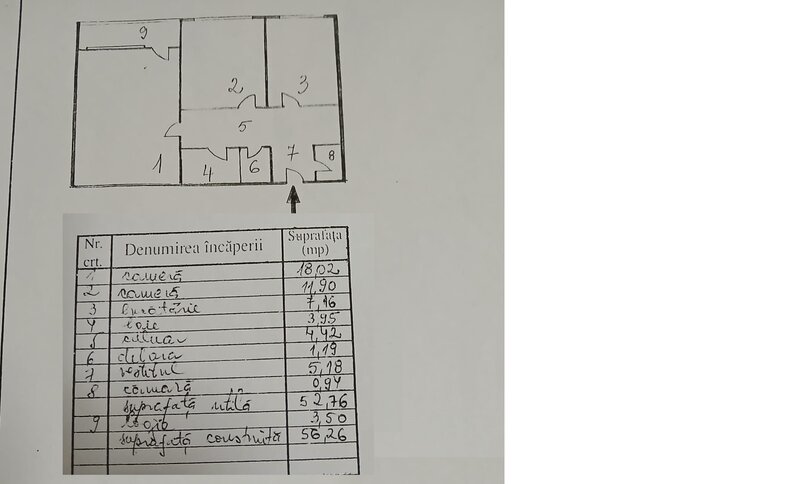 9
2
3
5
1
4
6
7
8
Nr. crt. Denumirea încăperii Suprafaţa (mp)
1 cameră 18,02
2 cameră 11,90
3 bucătărie 7,16
4 baie 3,95
5 4,42
6 1,19
7 vestibul 5,18
8 cămară 0,94
suprafaţă utilă 52,76
9 3,50
suprafaţă construită 56,26